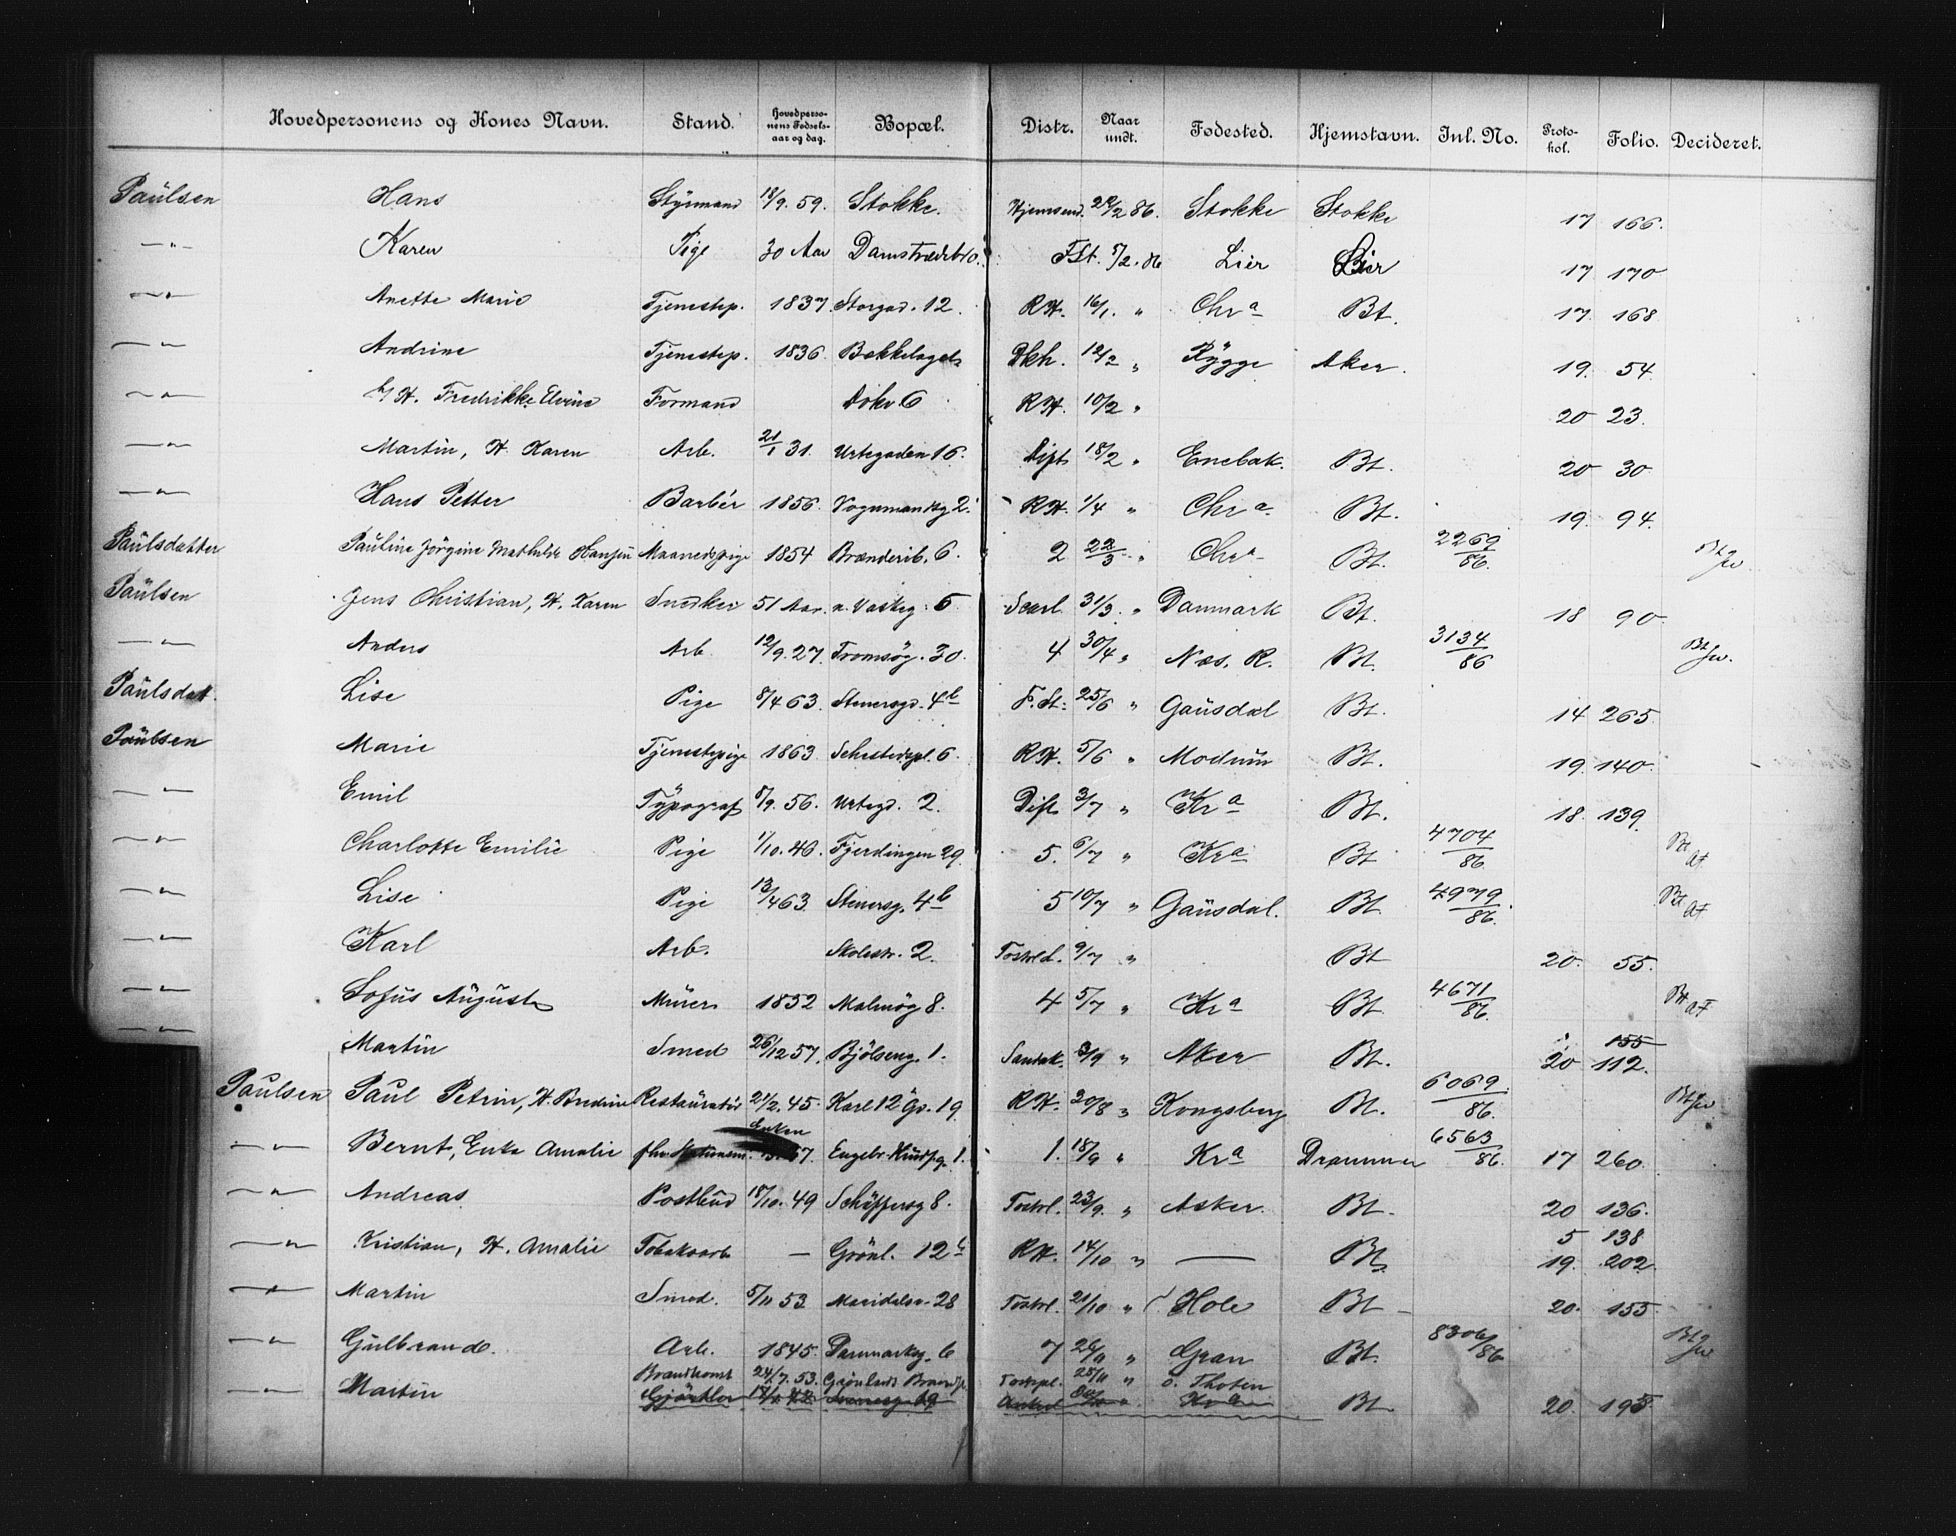 Hovedpersonens og Kones Navn. Stand. Hovedpersonens Fødselsaar og dag. Bopæl. Distr. Naar undt. Fødested. Hjemstavn. Inl. No. Protokol. Folio. Decideret.
Paulsen Hans Styrmand 18/9. 59. Stokke. Hjemsend. 22/2 86. Stokke Stokke 17 166.
—"— Karen Pige 30 Aar Damstrædet 10. F.St. 5/2. 86 Lier Lier 17 170
—"— Anette Marie Tjenestep. 1837. Storgad. 12. R.H. 16/1. " Chr a Bt. 17. 168
—"— Andrine Tjenestep. 1836. Bækkelaget Dkh. 12/2 " Rygge Aker. 19. 54.
—"— H. Fredrikke Elvine Formand 6 R.H. 10/2 " 20 23.
—"— Martin, H. Karen Arb. 21/1 31. Urtegaden 16. 18/2 " Enebak. Bt. 20 30.
—"— Hans Petter Barbér 1856. Vognmandsg 2. R.H. 1/4 " Chr a. Bt. 19. 94.
Paulsdatter Pauline Jörgine Mathilde Hansen Maanedspige 1854 Brænderib. 6. 2 22/3 " Chr a Bt. 2269/86. Bt
Paulsen Jens Christian, H. Karen Snedker 51 Aar. 5. 31/3. " Danmark Bt. 18 90
—"— Anders Arb. 12/9. 27. Tromsög. 30. 4 30/4 " Næs. R. Bt. 3134/86 Bt
Paulsdat. Lise Pige 8/4 63. Stenersgd. 4b F.St. 25/6 " Gausdal Bt. 14 265.
Paulsen Marie Tjenestepige 1863. Sehestedspl. 6. R.H. 5/6 " Modum Bt. 19. 140.
—"— Emil Typograf 5/9. 56. Urtegd. 2. 3/7 " Kr a Bt. 18. 139.
—"— Charlotte Emilie Pige 1/10. 46. Fjerdingen 29. 5. 6/7 " Kr a Bt 4704/86. Bt
—"— Lise Pige 13/4 63. Stenersg. 4b 5 10/7 " Gausdal. Bt. 4979/86. Bt
—"— Karl Arb. Skolestr. 2. 9/7 " Bt 20. 55.
—"— Sofus August Murer 1852 Malmög 8. 4 5/7 " Kr a Bt. 4671/86. Bt
—"— Martin Smed 26/12 57. Bjölseng. 1. 3/9 " Aker Bt. 155 20 112.
Paulsen Paul Petrin, H. Restauratör 21/2. 45. Karl 12 Gd. 19 R.H. 20/8 " Kongsberg Bt. 6069/86. Bt
—"— Bernt, Enke Amalie Enken 1. 1. 18/9 " Kr a Drammen 6563/86. 17 260.
—"— Andreas. Postbud 18/10. 49 8. 23/9. " Asker. Bt. 20 136.
—"— Kristian, H. Amalie Tobaksarb — Grönl. 12 R.H. 14/10 " — Bt. 5 138 19. 202.
—"— Martin Smed. 5/11 53. Maridalsv. 28 21/10 " Hole Bt 20. 155
—"— Gulbrand. Arb. 1845. Danmarksg. 6 7 26/11 " Gran Bt. 8306/86 Bt
—"— Martin Brandkonst 24/7. 53. Grønlands 28/11 " ö. Thoten Bt. 20. 195.
Gjörtler Kr a